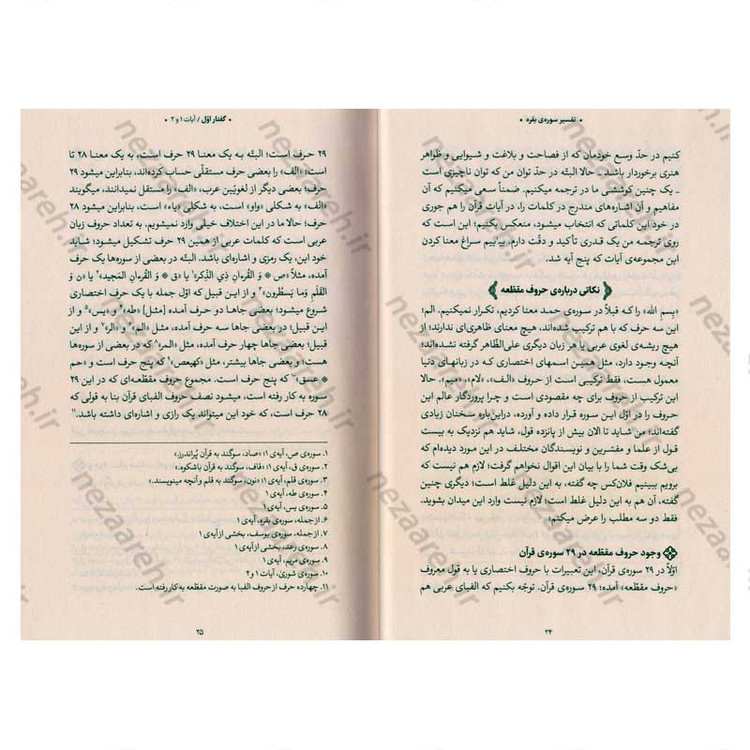 • تفسیر سوره‌ی بقره •
کنیم در حدّ وسع خودمان که از فصاحت و بلاغت و شیوایی و ظواهر
هنری برخوردار باشد ـ حالا البتّه در حدّ توان من که توان ناچیزی است
ـ یک چنین کوششی ما در ترجمه میکنیم. ضمناً سعی میکنیم که آن
مفاهیم و آن اشاره‌های مندرج در کلمات را، در آیات قرآن هم جوری
در خود این کلماتی که انتخاب میشود، منعکس بکنیم؛ این است که
روی ترجمه من یک قدری تأکید و دقّت دارم. بیاییم سراغ معنا کردن
این مجموعه‌ی آیات که پنج آیه شد.
نکاتی درباره‌ی حروف مقطّعه
«بِسم الله» را که قبلاً در سوره‌ی حمد معنا کردیم، تکرار نمیکنیم. الم؛
این سه حرف که با هم ترکیب شده‌اند، هیچ معنای ظاهری‌ای ندارند؛ از
هیچ ریشه‌ی لغوی عربی یا هر زبان دیگری علی‌الظّاهر گرفته نشده‌اند.
آنچه وجود دارد، مثل همین اسمهای اختصاری که در زبانهای دنیا
معمول هست، فقط ترکیبی است از حروف «الـف»، «لام»، «میم». حالا
این ترکیب از حروف برای چه مقصودی است و چرا پروردگار عالم این
حروف را در اوّل این سوره قرار داده و آورده، دراین‌باره سخنان زیادی
گفته‌اند؛ من شاید تا الان بیش از پانزده قول، شاید هم نزدیک به بیست
قول از علما و مفسّرین و نویسندگان مختلف در این مورد دیده‌ام که
بی‌شک وقت شما را با بیان این اقوال نخواهم گرفت؛ لازم هم نیست که
بنشینیم ببینیم فلان‌کس چه گفته، به این دلیل غلط است؛ دیگری چنین
گفته، آن هم به این دلیل غلط است؛ لازم نیست وارد این میدان بشوید.
فقط دو سه مطلب را عرض میکنم:
وجود حروف مقطّعه در ۲۹ سوره‌ی قرآن
اوّلاً در ۲۹ سوره‌ی قرآن، این تعبیرات با حروف اختصاری یا به قول معروف
«حروف مقطّعه» آمده؛ ۲۹ سوره‌ی قرآن. توجّه بکنیم که الفبای عربی هم
۲۴
• گفتار اوّل / آیات ۱ و ۲ •
۲۹ حرف است؛ البتّه به یک معنا ۲۹ حرف است، به یک معنا ۲۸ تا
حرف؛ «الف» را بعضی حرف مستقلّی حساب کرده‌اند، بنابراین میشود ۲۹
حرف؛ بعضی دیگر از لغویّین عرب، «الف» را مستقل نمیدانند، میگویند
«الف» به شکلی «واو» است، به شکلی «یاء» است، بنابراین میشود ۲۸
حرف؛ حالا ما در این اختلاف خیلی وارد نمیشویم. به تعداد حروف زبان
عربی است که کلمات عربی از همین ۲۹ حرف تشکیل میشود؛ شاید
خود این، یک رمزی و اشاره‌ای باشد. در بعضی از سوره‌ها یک حرف
آمده، مثلاً «ص وَ القُرءانِ ذِی الذِّکر»۱ یا «ق وَ القُرءانِ المَجید»۲ یا «ن وَ
القَلَمِ وَ ما یَسطُرون»۳ و از این قبیل که اوّل جمله با یک حرف اختصاری
شروع میشود؛ بعضی جاها دو حرف آمده [مثل] «طه»۴ و «یس»۵ و از این
قبیل؛ در بعضی جاها سه حرف آمده، مثل «الم»۶ و «الر»۷ و از این
قبیل؛ بعضی جاها چهار حرف آمده، مثل «المر»۸ که در بعضی از سوره‌ها
هست؛ و بعضی جاها بیشتر، مثل «کهیعص»۹ که پنج حرف است و «حم
عسق»۱۰ که پنج حرف است. مجموع حروف مقطّعه‌ای که در این ۲۹
سوره به کار رفته است، نصف حروف الفبای قرآن بنا به قولی که
۲۸ حرف است، که خود این میتواند یک رازی و اشاره‌ای داشته باشد.۱۱
۱. سوره‌ی ص، آیه‌ی ۱؛ «صاد، سوگند به قرآن پُراندرز.»
۲. سوره‌ی ق، آیه‌ی ۱؛ «قاف، سوگند به قرآن باشکوه.»
۳. سوره‌ی قلم، آیه‌ی ۱؛ «نون، سوگند به قلم و آنچه مینویسند.»
۴. سوره‌ی طه، آیه‌ی ۱
۵. سوره‌ی یس، آیه‌ی ۱
۶. از جمله، سوره‌ی بقره، آیه‌ی ۱
۷. از جمله، سوره‌ی یوسف، بخشی از آیه‌ی ۱
۸. سوره‌ی رعد، بخشی از آیه‌ی ۱
۹. سوره‌ی مریم، آیه‌ی ۱
۱۰. سوره‌ی شوریٰ، آیات ۱ و ۲
۱۱. چهارده حرف از حروف الفبا به صورت مقطّعه به کار رفته است.
۲۵
nezaareh.ir